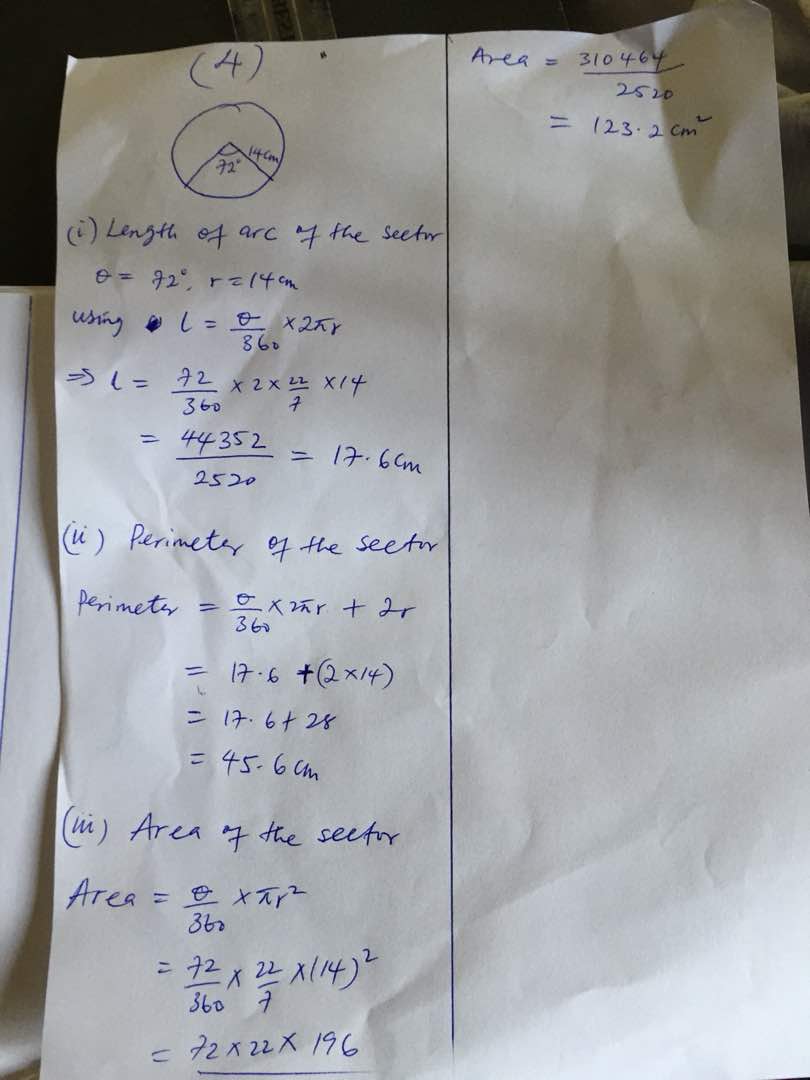 (4)
14cm
72°
(i) Length of arc of the sector
θ = 72°, r = 14cm
using l = θ/360 × 2πr
⇒ l = 72/360 × 2 × 22/7 × 14
= 44352/2520 = 17.6cm
(ii) Perimeter of the sector
Perimeter = θ/360 × 2πr + 2r
= 17.6 + (2×14)
= 17.6 + 28
= 45.6cm
(iii) Area of the sector
Area = θ/360 × πr²
= 72/360 × 22/7 × (14)²
= 72 × 22 × 196
Area = 310464/2520
= 123.2cm²